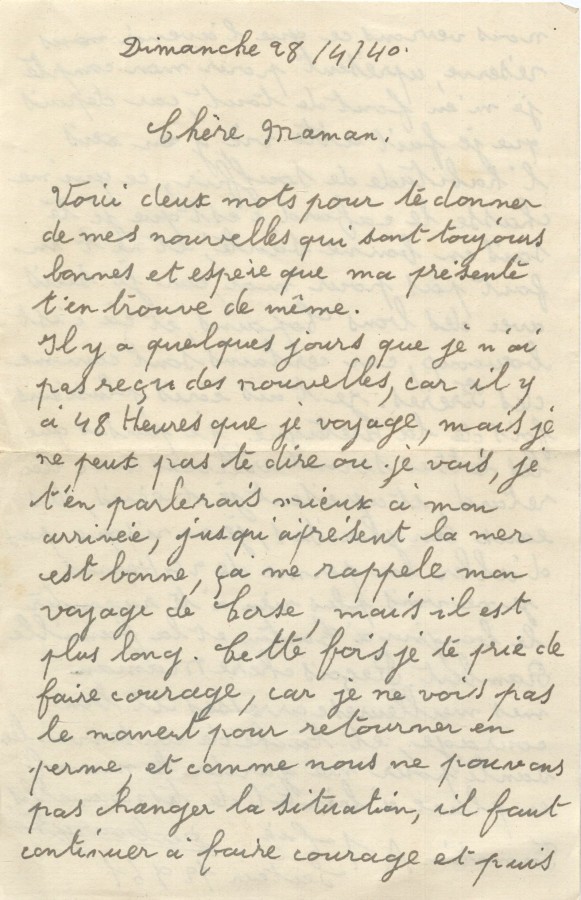 Dimanche 28/4/40.
Chère Maman.
Voici deux mots pour te donner
de mes nouvelles qui sont toujours
bonnes et espère que ma présente
t'en trouve de même.
Il y a quelques jours que je n'ai
pas reçu des nouvelles, car il y
à 48 Heures que je voyage, mais je
ne peux pas te dire ou je vais, je
t'en parlerais mieux à mon
arrivée, jusqu'aprésent la mer
est bonne, ça me rappele mon
voyage de Corse, mais il est
plus long. Cette fois je te prie de
faire courage, car je ne vois pas
le moment pour retourner en
perme, et comme nous ne pouvons
pas changer la situation, il faut
continuer à faire courage et puis